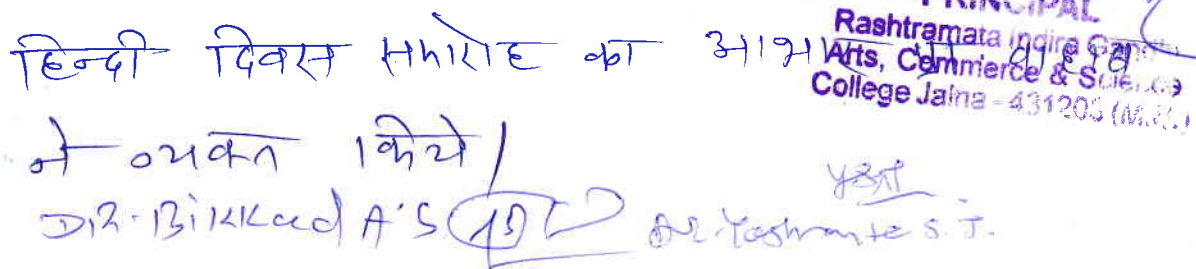 PRINCIPAL
Rashtramata Indira Gandhi
Arts, Commerce & Science
College Jalna - 431203 (M.S.)
हिन्दी दिवस समारोह का
ने व्यक्त किये।
Dr. Bikkad A.S
Dr. Yashwante S. J.